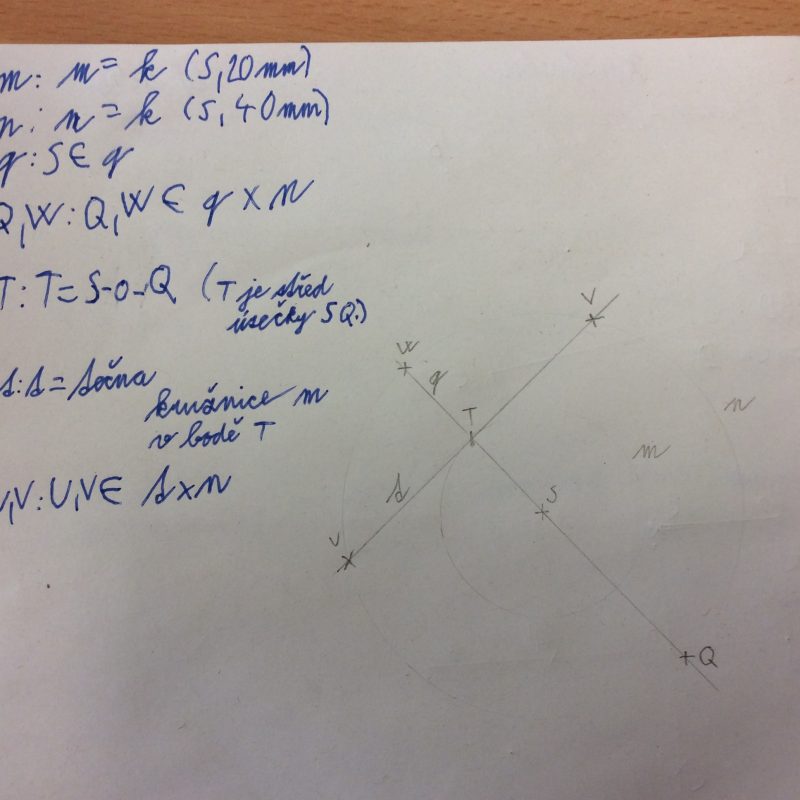 m: m = k (S, 20 mm)
n: n = k (S, 40 mm)
q: S ∈ q
Q, W: Q, W ∈ q × n
T: T = S-o-Q (T je střed
úsečky SQ.)
s: s = sečna
kružnice m
v bodě T
U, V: U, V ∈ s × n
V
W
q
T
n
m
s
S
U
Q